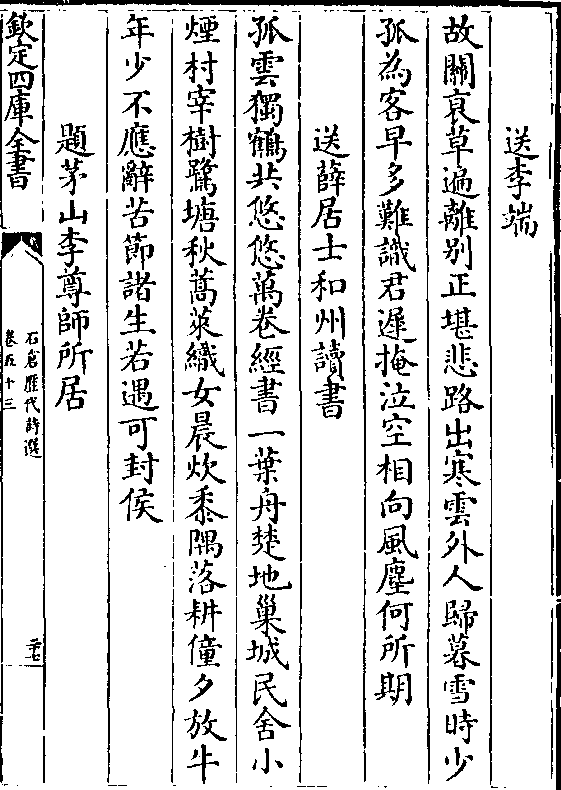 送李端
故關衰草遍離别正堪悲路出寒雲外人歸暮雪時少
孤為客早多難識君遲掩泣空相向風塵何所期
送薛居士和州讀書
孤雲獨鶴共悠悠萬卷經書一葉舟楚地巢城民舍小
煙村宰樹鷺塘秋蒿萊織女晨炊黍隅落耕僮夕放牛
年少不應辭苦節諸生若遇可封侯
題茅山李尊師所居
欽定四庫全書
石倉歷代詩選
卷五十三